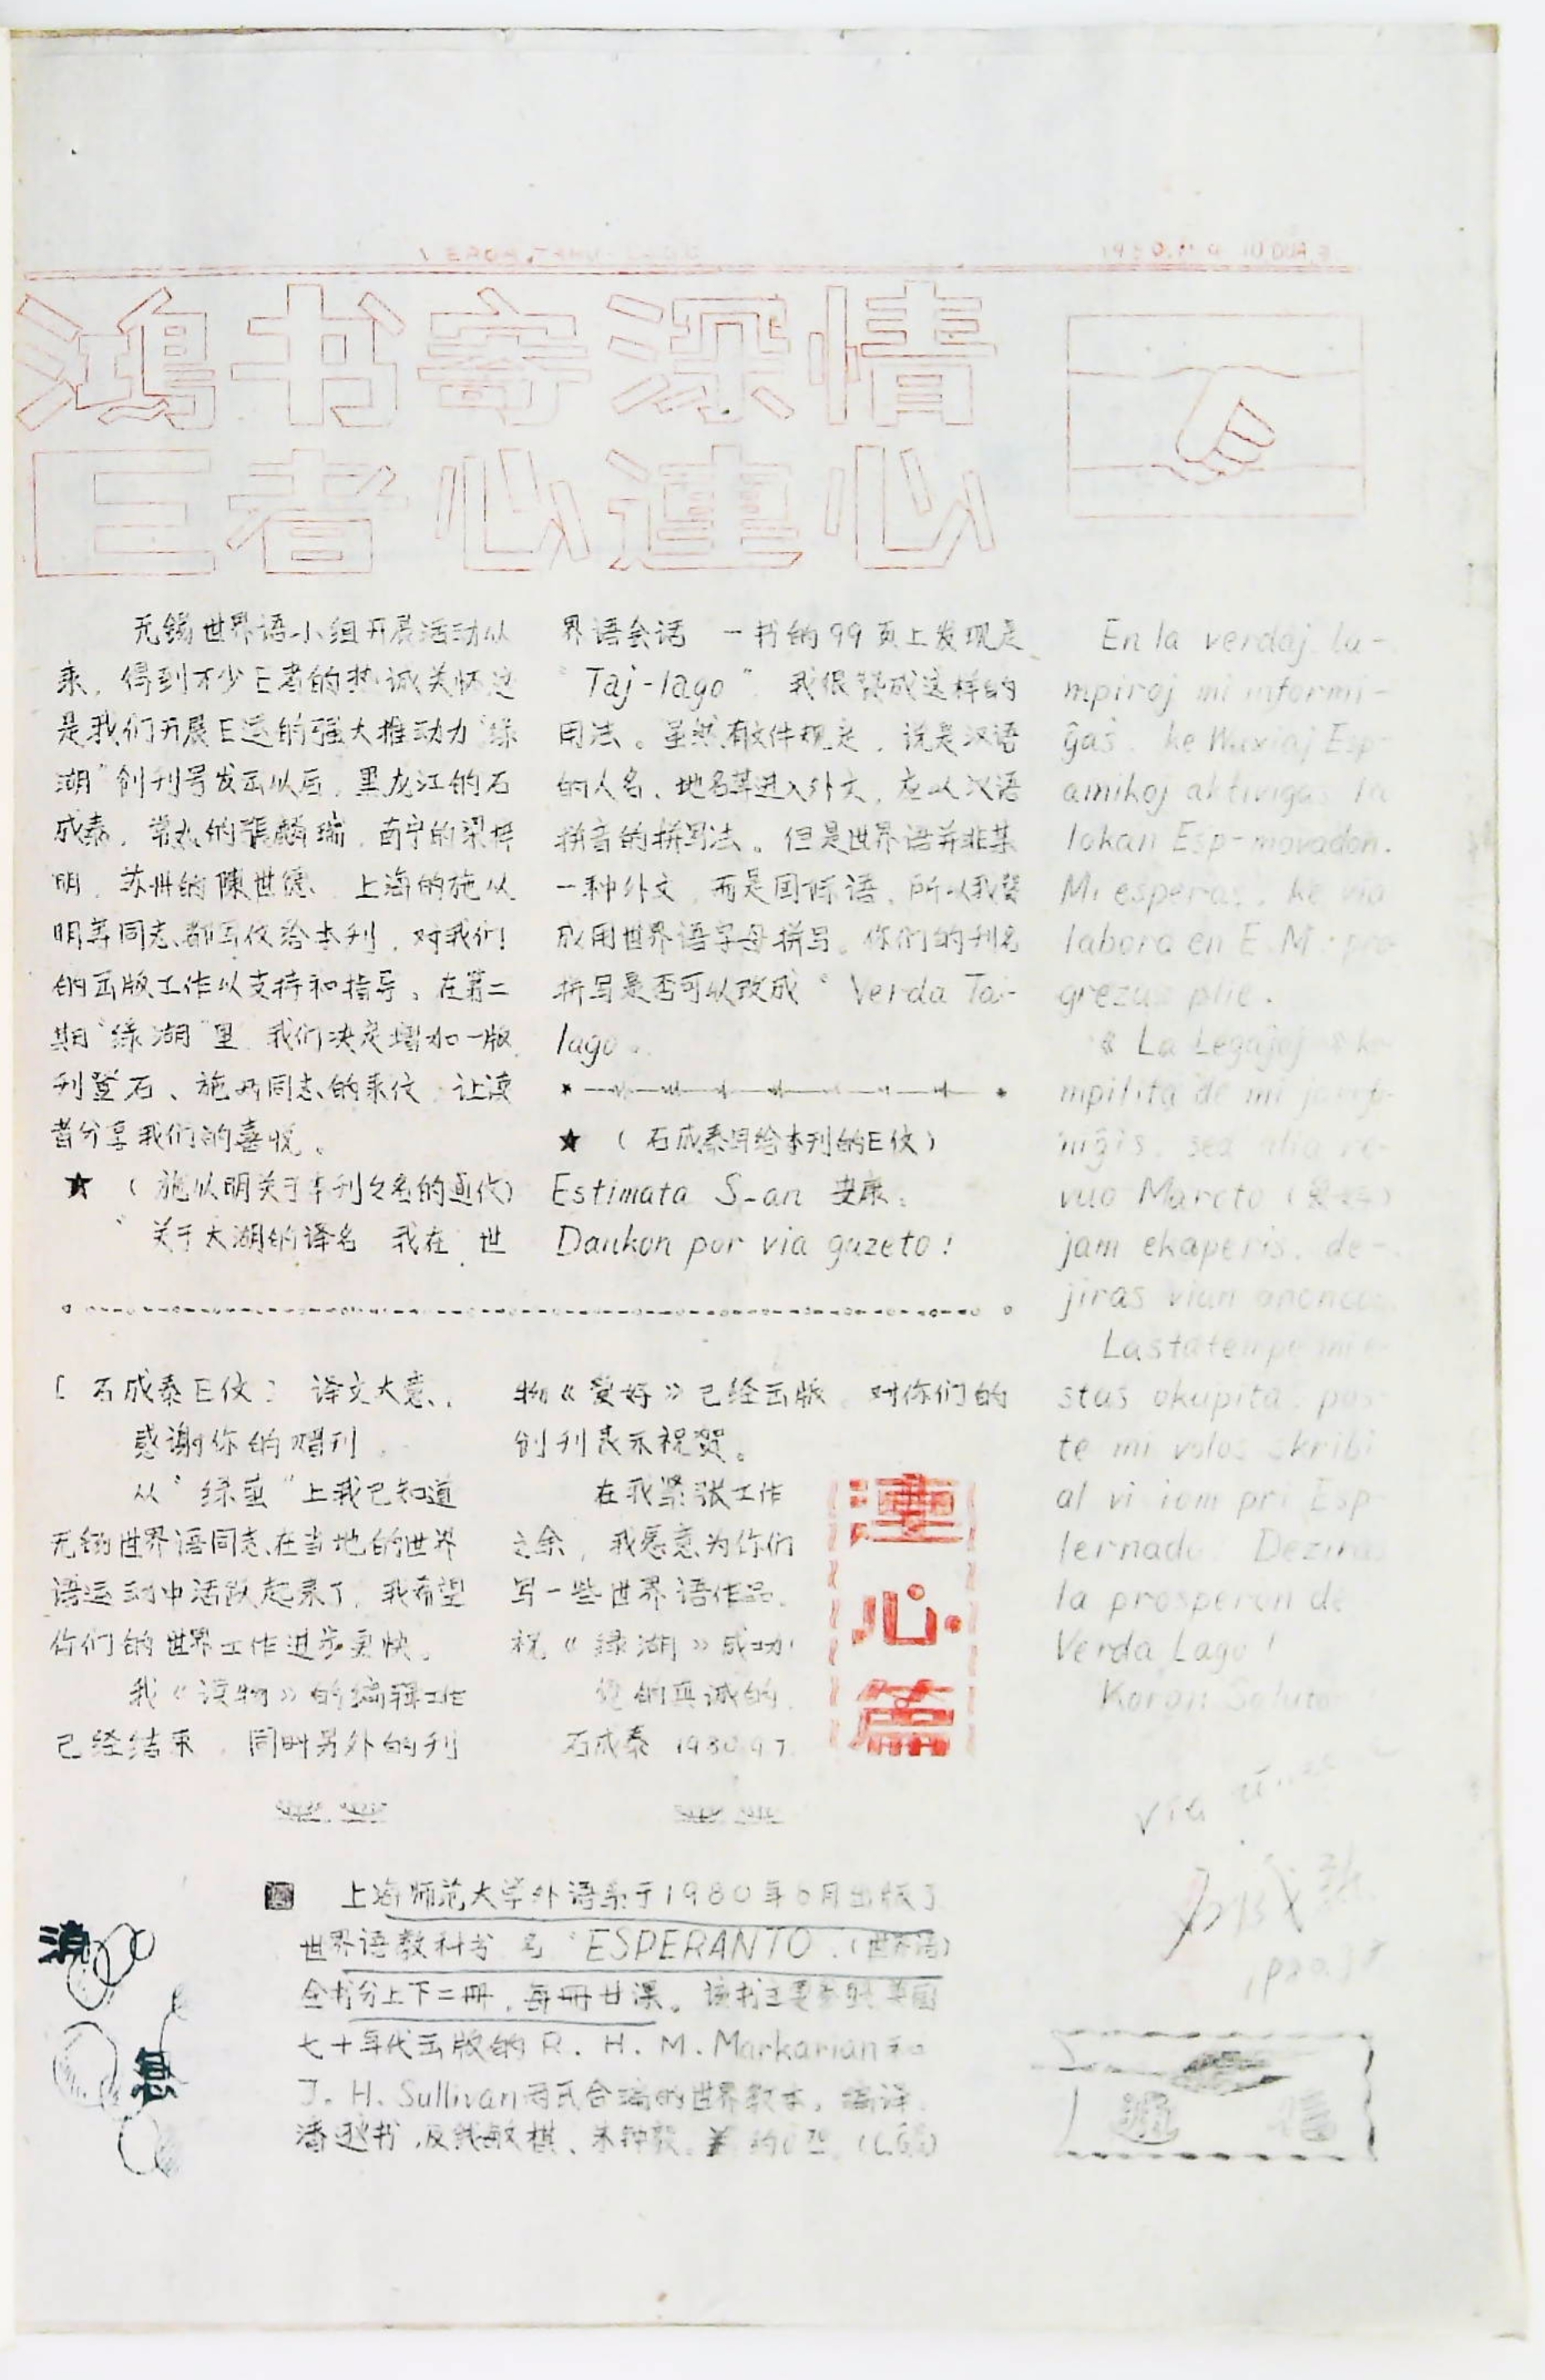 鸿书寄深情
E者心连心
无锡世界语小组开展活动以
来，得到不少E者的热诚关怀这
是我们开展E运的强大推动力“绿
湖”创刊号发出以后，黑龙江的石
成泰，常熟的張麟瑞，南宁的梁梓
明，苏州的陳世德、上海的施以
明等同志、都写信给本刊，对我们
的出版工作以支持和指导。在第二
期“绿湖”里，我们决定增加一版
刊登石、施两同志的来信，让读
者分享我们的喜悦。
★（施以明关于本刊之名的通信）
“关于太湖的译名 我在 世
界语会话 一书的99页上发现是
“Taj-lago”，我很赞成这样的
用法。虽然有文件规定，说是汉语
的人名、地名等进入外文，应以汉语
拼音的拼写法。但是世界语并非某
一种外文，而是国际语，所以我赞
成用世界语字母拼写。你们的刊名
拼写是否可以改成“Verda Taj-
lago。
★（石成泰写给本刊的E信）
Estimata S-an 安康：
Dankon por via gazeto!
En la verdaj lu-
mpiroj mi informi-
ĝas, ke Wuxiaj Esp-
amikoj aktivigas la
lokan Esp-movadon.
Mi esperas, ke via
laboro en E.M. pro-
grezus plie.
« La Legaĵoj » ko-
mpilita de mi jam
niĝis, sed alia re-
vuo Marcto (爱好)
jam ekaperis, de-
jiras vian
Lastatempe mi e-
stas okupita, pos-
te mi volos skribi
al vi iom pri Esp
lernado Deziras
la prosperon de
Verda Lago!
Koran Saluton
[石成泰E信] 译文大意：
感谢你的赠刊。
从“绿萤”上我已知道
无锡世界语同志、在当地的世界
语运动中活跃起来了，我希望
你们的世界工作进步更快。
我《读物》的编辑工作
已经结束，同时另外的刊
物《爱好》已经出版。对你们的
创刊表示祝贺。
在我紧张工作
之余，我愿意为你们
写一些世界语作品。
祝《绿湖》成功！
您的真诚的
石成泰 1980.9.7.
連
心
篇
消
息
上海师范大学外语系于1980年6月出版了
世界语教科书 名“ESPERANTO”（世界语）
全书分上下二册，每册廿课。该书主要参照英国
七十年代出版的R.H.M.Markarian和
J.H.Sullivan两氏合编的世界教本。编译
潘逊书，及钱敏棋、朱钟毅。
通 信